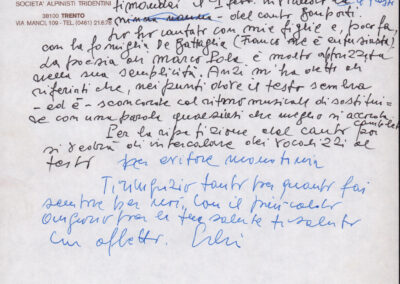 SOCIETA' ALPINISTI TRIDENTINI
38100 TRENTO
VIA MANCI, 109 - TEL. (0461) 21.8
del canto
ho cantato con mie figlie e, poco fa,
con la famiglia de Battaglia (Franco me è entusiasta)
da poesia di Marco Pola è molto apprezzata
nella sua semplicità. Anzi m'ha detto di
riferirti che, nei punti dove il testo sembra
- ed è - scomodo col ritmo musicale di sostitui=
re con una parola qualsiasi che meglio si accordi
Per la ripetizione del canto poi
si vedrà di intercalare dei vocalizzi al
testo per evitare monotonia
Ti ringrazio tanto per quanto fai
sempre per noi. Con il più caldo
augurio per la tua salute ti saluto
con affetto.